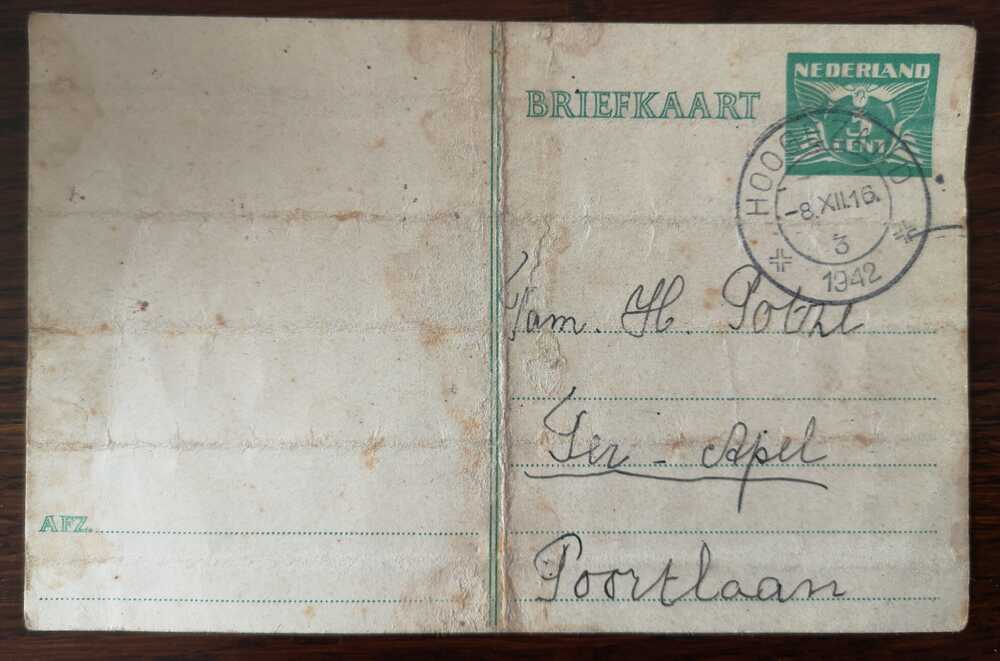 BRIEFKAART
NEDERLAND
3
CENT
-8.XII.16.
3
1942
Fam. H. Potze
Ter-Apel
Poortlaan
AFZ.